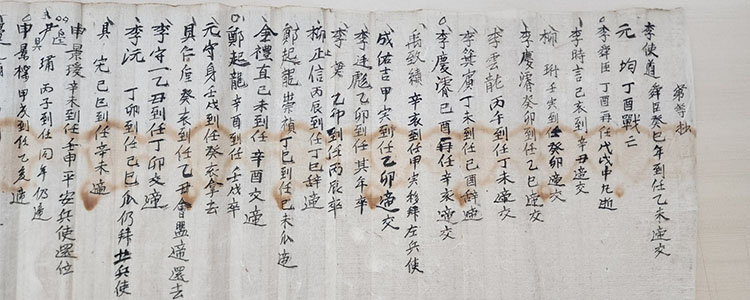 李使道 舜臣癸巳年到任乙未遞交
元均 丁酉戰亡
李舜臣 丁酉再任戊戌中丸逝
李時言己亥到任辛丑遞交
柳珩 壬寅到任癸卯遞交
李慶濬癸卯到任乙巳遞交
李雲龍 丙午到任丁未遞交
李箕賓丁未到任己酉辞遞
李慶濬己酉再任辛亥遞交
禹致績辛亥到任甲寅移拜左兵使
成佑吉甲寅到任乙卯遞交
李廷彪乙卯到任其年卒
李英 乙卯到任丙辰卒
柳止信丙辰到任丁巳辞遞
鄭起龍崇禎丁巳到任己未瓜遞
金禮直己未到任辛酉交遞
鄭起龍 辛酉到任壬戌卒
元守身壬戌到任癸亥拿去
具仁垕癸亥到任乙丑會盟遞還去
李守一乙丑到任丁卯交遞
李沆 丁卯到任己巳瓜仍拜北兵使
具宏己巳到任辛未遞
申景瑗辛未到任壬申平安兵使還位
邊
尹璛 丙子到任同年仍遞
申景禋甲戌到任乙亥遞